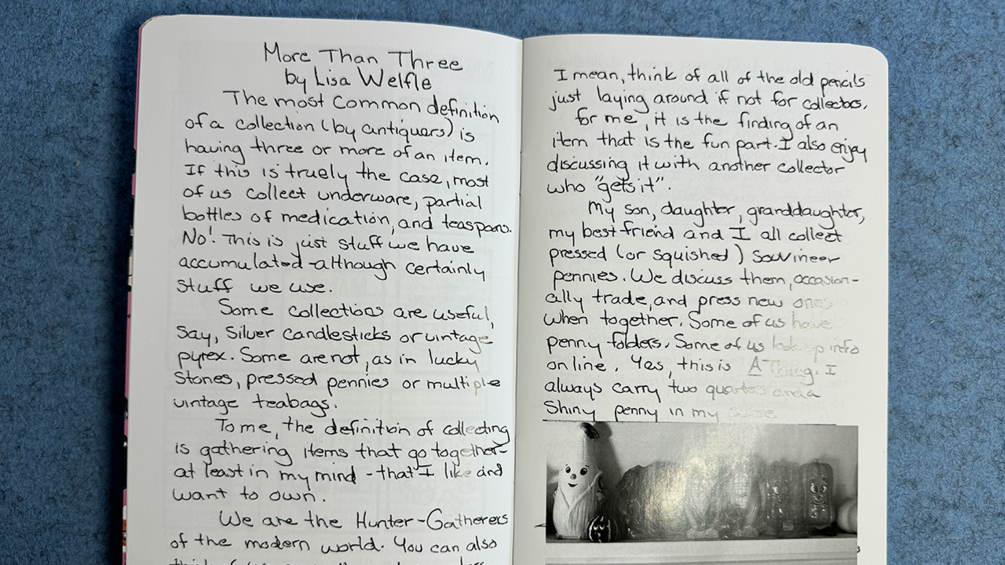 More Than Three
by Lisa Welfle
The most common definition
of a collection (by antiquers) is
having three or more of an item.
If this is truely the case, most
of us collect underware, partial
bottles of medication, and teaspoons.
No! This is just stuff we have
accumulated-although certainly
stuff we use.
Some collections are useful,
say, silver candlesticks or vintage
pyrex. Some are not, as in lucky
stones, pressed pennies or multiple
vintage teabags.
To me, the definition of collecting
is gathering items that go together-
at least in my mind - that I like and
want to own.
We are the Hunter-Gatherers
of the modern world. You can also
I mean, think of all of the old pencils
just laying around if not for collectors.
For me, it is the finding of an
item that is the fun part. I also enjoy
discussing it with another collector
who "gets it".
My son, daughter, granddaughter,
my best friend and I all collect
pressed (or squished) souvineer
pennies. We discuss them, occasion-
ally trade, and press new ones
when together. Some of us have
penny folders. Some of us look up info
on line. Yes, this is A Thing. I
always carry two quarters and a
shiny penny in my